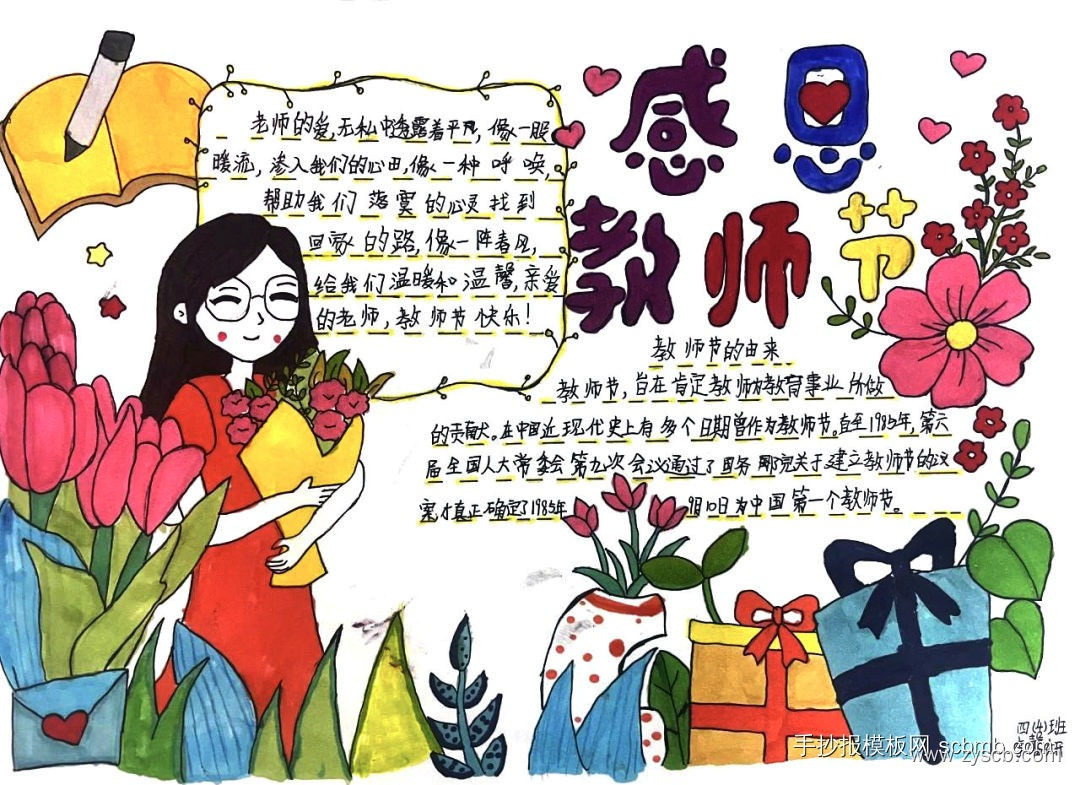 感恩
教师节
老师的爱,无私中透露着平凡,像一股
暖流,渗入我们的心田,像一种呼唤,
帮助我们落寞的心灵找到
回家的路,像一阵春风,
给我们温暖和温馨,亲爱
的老师,教师节快乐!
教师节的由来
教师节,旨在肯定教师为教育事业所做
的贡献。在中国近现代史上有多个日期曾作为教师节。直至1985年,第六
届全国人大常委会第九次会议通过了国务院关于建立教师节的议
案,才真正确定了1985年9月10日为中国第一个教师节。
四(4)班
手抄报模板网 scbmb.com
www.zyscb.com